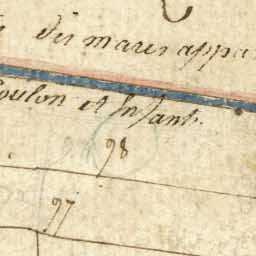 des mares appa
oulon et Enfants.
98
97